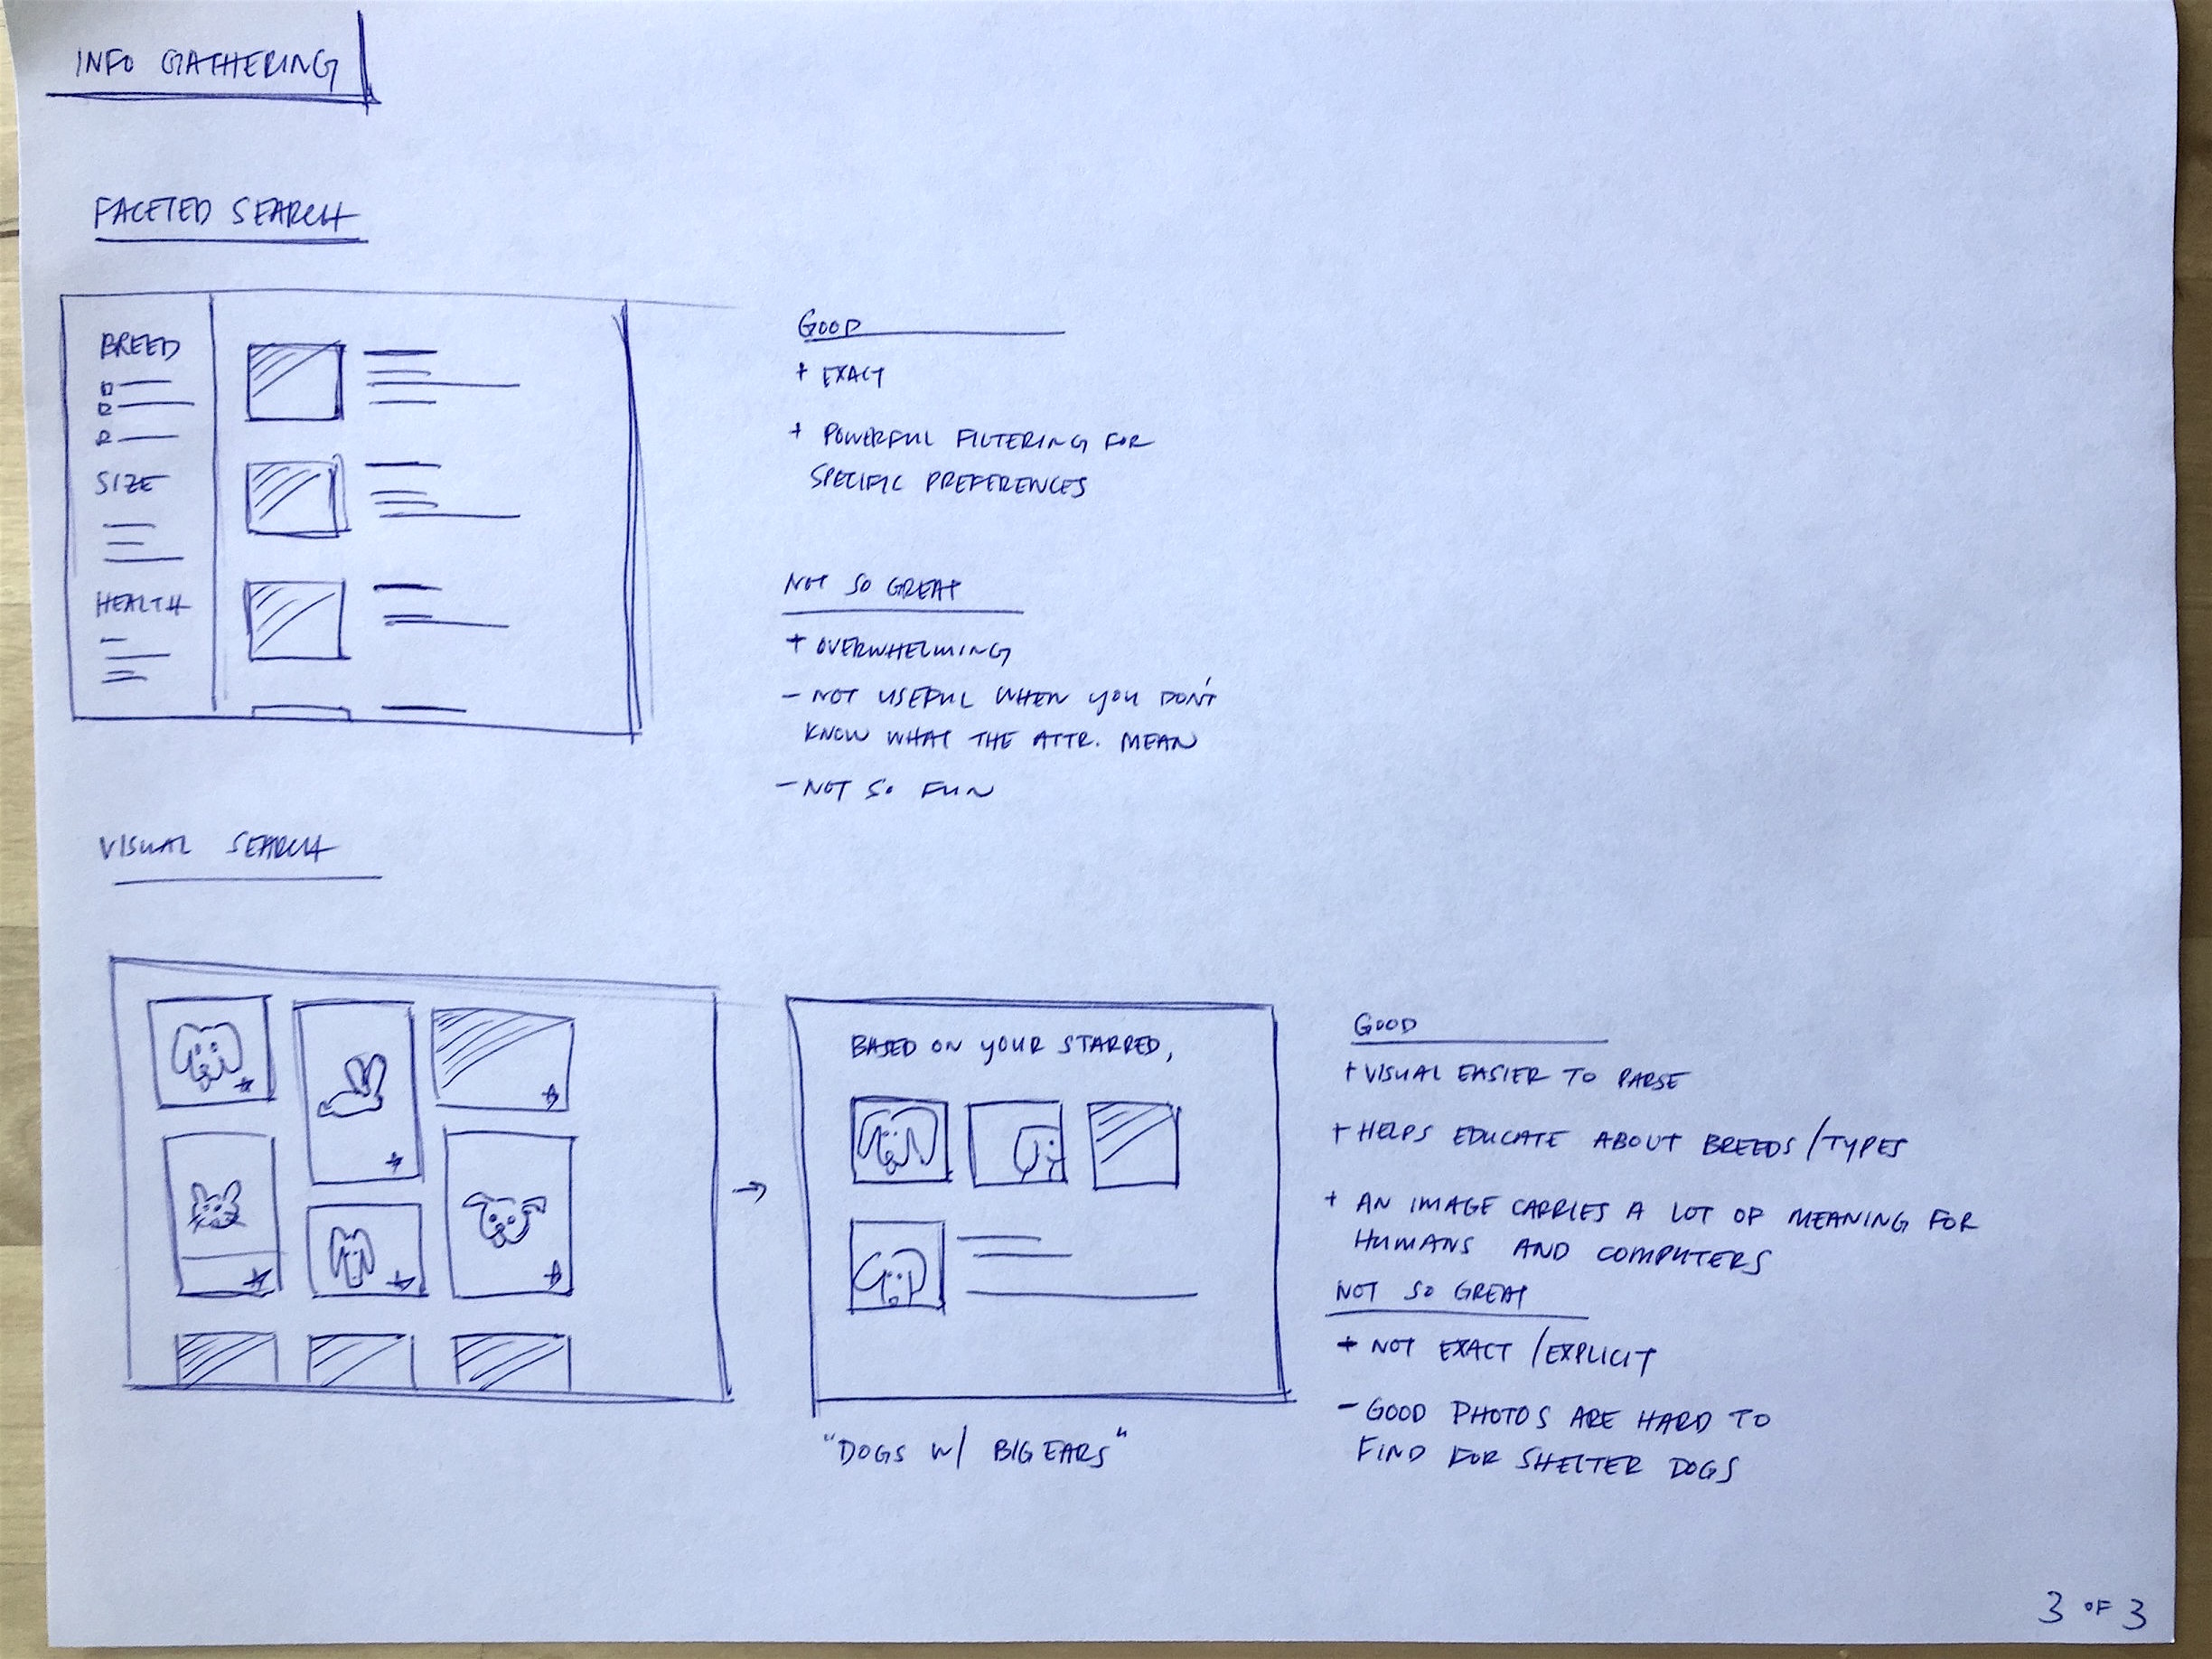 INFO GATHERING
FACETED SEARCH
BREED
SIZE
HEALTH
GOOD
+ EXACT
+ POWERFUL FILTERING FOR
SPECIFIC PREFERENCES
NOT SO GREAT
+ OVERWHELMING
- NOT USEFUL WHEN YOU DON'T
KNOW WHAT THE ATTR. MEAN
- NOT SO FUN
VISUAL SEARCH
BASED ON YOUR STARRED,
"DOGS W/ BIG EARS"
GOOD
+ VISUAL EASIER TO PARSE
+ HELPS EDUCATE ABOUT BREEDS/TYPES
+ AN IMAGE CARRIES A LOT OF MEANING FOR
HUMANS AND COMPUTERS
NOT SO GREAT
+ NOT EXACT/EXPLICIT
- GOOD PHOTOS ARE HARD TO
FIND FOR SHELTER DOGS
3 OF 3